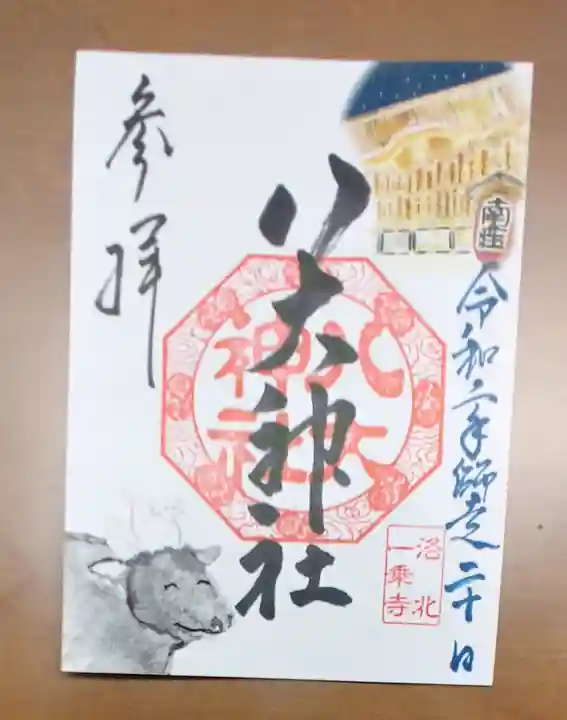 南座
令和二年師走二十日
八大神社
八大
神社
洛北
一乗寺
参拝